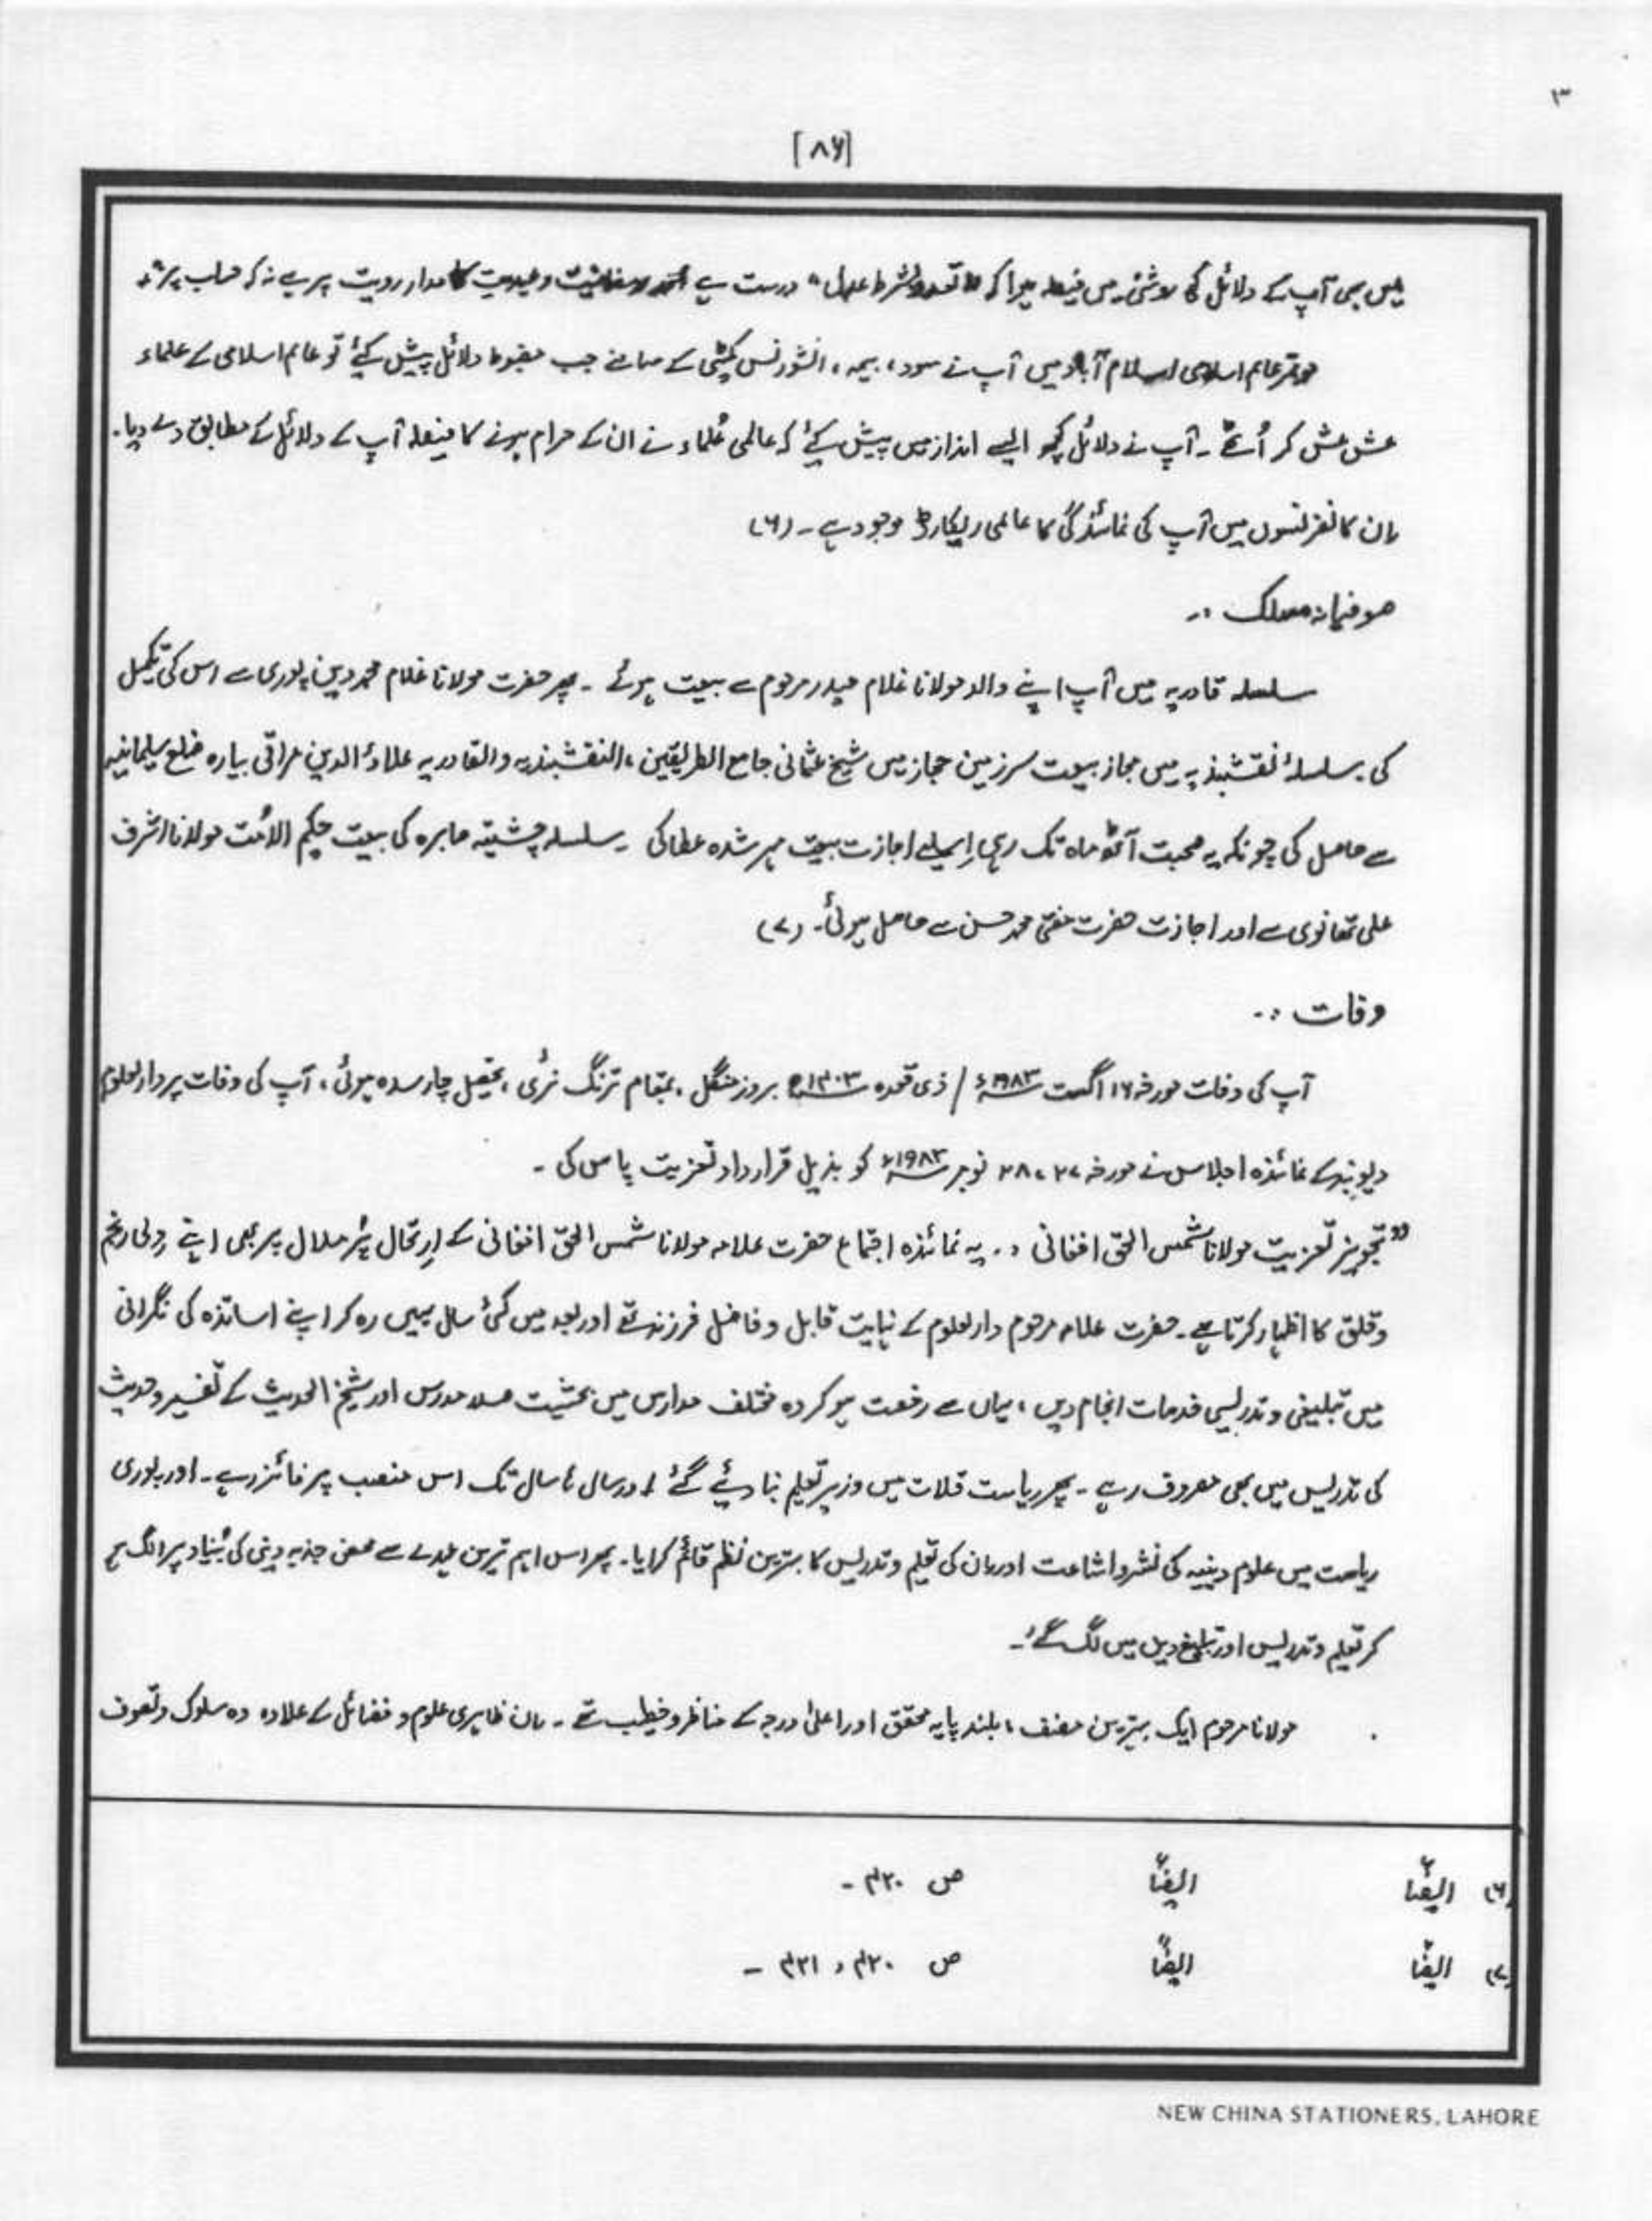 ۳
[۸۶]
میں بھی آپ کے دلائل کی روشنی میں فیصلہ ہوا کہ "تعدد بشرط عدل" درست ہے اور رمضانیت و عیدیت کا مدار رویت پر ہے نہ کہ حساب پر۔
موتمر عالم اسلامی اسلام آباد میں آپ نے سود، بیمہ، انشورنس کمیٹی کے سامنے جب مضبوط دلائل پیش کیئے تو عالم اسلامی کے علماء
عش عش کر اُٹھے ۔ آپ نے دلائل کچھ ایسے انداز میں پیش کیئے کہ عالمی عُلماء نے ان کے حرام ہونے کا فیصلہ آپ کے دلائل کے مطابق دے دیا۔
ان کانفرنسوں میں آپ کی نمائندگی کا عالمی ریکارڈ موجود ہے ۔ (۶)
صوفیانہ مسلک :۔
سلسلہ قادریہ میں آپ اپنے والد مولانا غلام حیدر مرحوم سے بیعت ہوئے ۔ پھر حضرت مولانا غلام محمد دین پوری سے اس کی تکمیل
کی ۔ سلسلۂ نقشبندیہ میں مجاز بیعت سرزمین حجاز میں شیخ عثمانی جامع الطریقین، النقشبندیہ والقادریہ علاؤ الدین عراقی بیارہ ضلع سلیمانیہ
سے حاصل کی چونکہ یہ صحبت آٹھ ماہ تک رہی اِسلیے اجازت بیعت مہر شدہ عطا کی ۔ سلسلہ چشتیہ صابرہ کی بیعت حکیم الاُمت مولانا اشرف
علی تھانوی سے اور اجازت حضرت مفتی محمد حسن سے حاصل ہوئی۔ (۷)
وفات :۔
آپ کی وفات مورخہ ۱۶ اگست ۱۹۸۳ء / ذی قعدہ ۱۴۰۳ھ بروز منگل ، بمقام ترنگ زئی ، تحصیل چارسدہ ہوئی ، آپ کی وفات پر دارالعلوم
دیوبند کے نمائندہ اجلاس نے مورخہ ۲۷، ۲۸ نومبر ۱۹۸۳ء کو بذیل قرارداد تعزیت پاس کی ۔
"تجویز تعزیت مولانا شمس الحق افغانی :۔ یہ نمائندہ اجتماع حضرت علامہ مولانا شمس الحق افغانی کے ارتحال پُر ملال پر بھی اپنے دلی رنج
و قلق کا اظہار کرتا ہے۔ حضرت علامہ مرحوم دارالعلوم کے نہایت قابل و فاضل فرزند تھے اور بعد میں کئی سال یہیں رہ کر اپنے اساتذہ کی نگرانی
میں تبلیغی و تدریسی خدمات انجام دیں ، یہاں سے رخصت ہو کر وہ مختلف مدارس میں بحثیت صدر مدرس اور شیخ الحدیث کے تفسیر و حدیث
کی تدریس میں بھی مصروف رہے ۔ پھر ریاست قلات میں وزیر تعلیم بنا دیئے گئے اور سال ہا سال تک اس منصب پر فائز رہے۔ اور پوری
ریاست میں علوم دینیہ کی نشرواشاعت اور ان کی تعلیم و تدریس کا بہترین نظم قائم کرایا۔ پھر اس اہم ترین عہدے سے محض جذبہ دینی کی بُنیاد پر الگ ہو
کر تعلیم و تدریس اور تبلیغ دین میں لگ گئے۔
مولانا مرحوم ایک بہترین مصنف ، بلند پایہ محقق اور اعلیٰ درجہ کے مناظر و خطیب تھے ۔ ان ظاہری علوم و فضائل کے علاوہ وہ سلوک و تصوف
(۶) ایضاً ایضاً ص ۴۲۰ ۔
(۷) ایضاً ایضاً ص ۴۲۰ ، ۴۲۱ ۔
NEW CHINA STATIONERS, LAHORE